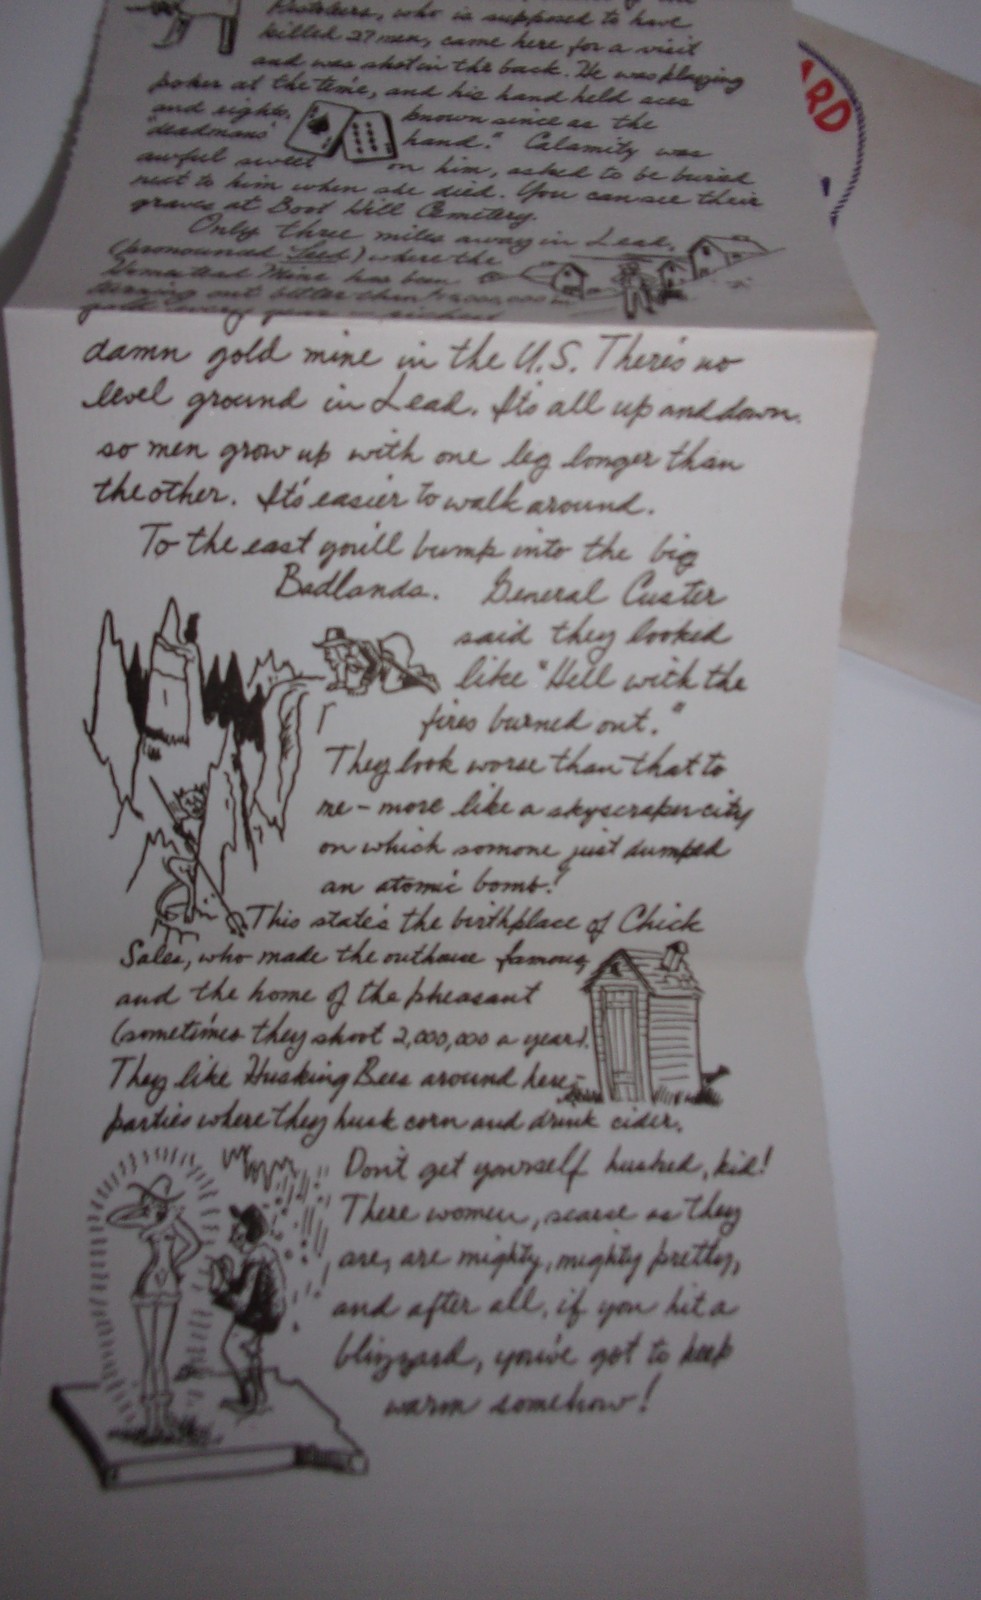 Pistoleers, who is supposed to have
killed 27 men, came here for a visit
and was shot in the back. He was playing
poker at the time, and his hand held aces
and eights, known since as the
"deadmans' hand." Calamity was
awful sweet on him, asked to be buried
next to him when she died. You can see their
graves at Boot Hill Cemetery.
Only three miles away in Lead,
(pronounced Leed) where the
Homestead Mine has been
turning out better than
gold every year in richest
damn gold mine in the U.S. There's no
level ground in Lead. It's all up and down.
so men grow up with one leg longer than
the other. It's easier to walk around.
To the east you'll bump into the big
Badlands. General Custer
said they looked
like "Hell with the
fires burned out."
They look worse than that to
me - more like a skyscraper city
on which somone just dumped
an atomic bomb!
This state's the birthplace of Chick
Sales, who made the outhouse famous,
and the home of the pheasant
(sometimes they shoot 2,000,000 a year).
They like Husking Bees around here -
parties where they husk corn and drink cider.
Don't get yourself husked, kid!
There women, scarse as they
are, are mighty, mighty pretty,
and after all, if you hit a
blizzard, you've got to keep
warm somehow!
RD